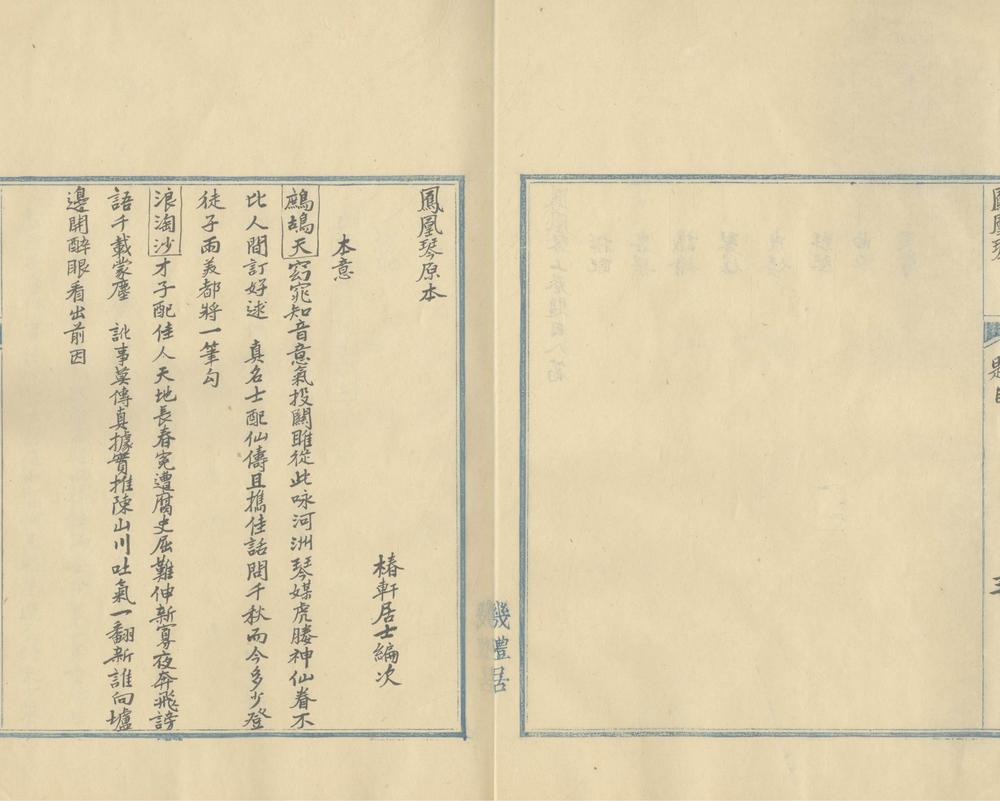 鳳凰琴
題目
三
鳳凰琴原本
椿軒居士編次
本意
鷓鴣天窈窕知音意氣投關雎從此咏河洲琴媒虎媵神仙眷不
比人間訂好逑　真名士配仙儔且携佳話問千秋而今多少登
徒子兩美都將一筆勾
浪淘沙才子配佳人天地長春冤遭腐史屈難伸新寡夜奔飛謗
語千載蒙塵　訛事莫傳真據實推陳山川吐氣一翻新誰向壚
邊開醉眼看出前因
禮居